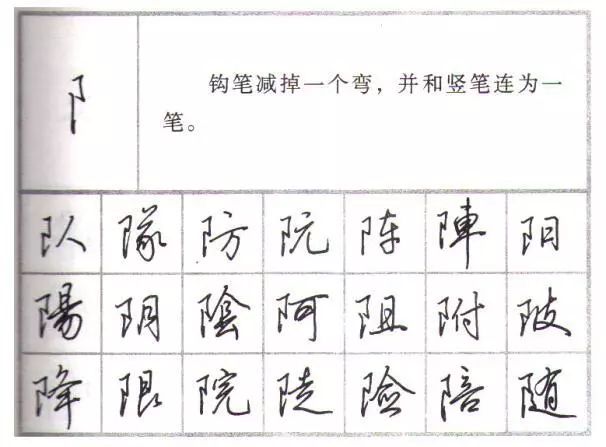 阝
钩笔减掉一个弯，并和竖笔连为一
笔。
队 隊 防 阮 阵 陣 阳
陽 阴 陰 阿 阻 附 陂
降 限 院 陡 险 陪 随